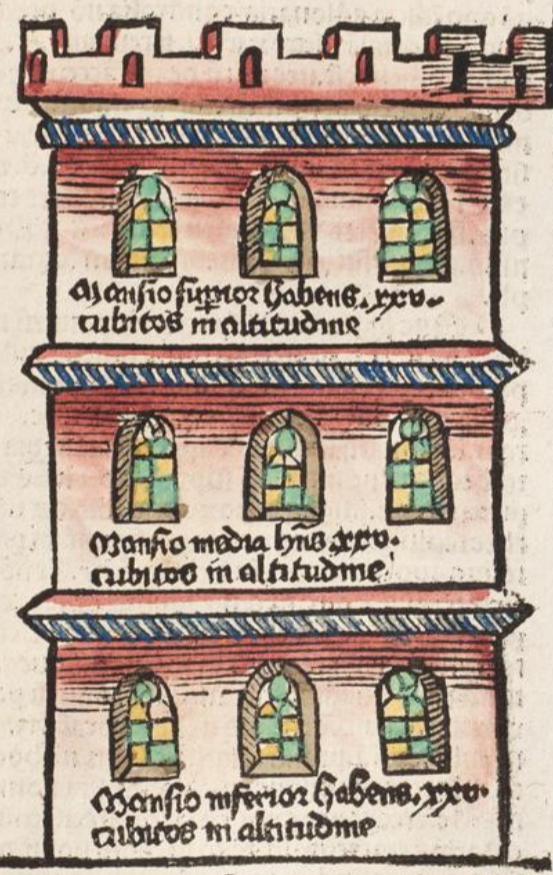 Mansio suꝑior habens .xxv.
cubitos in altitudine
Mansio media hn̄s xxv.
cubitos in altitudine
Mansio inferior habens .xxv.
cubitos in altitudine